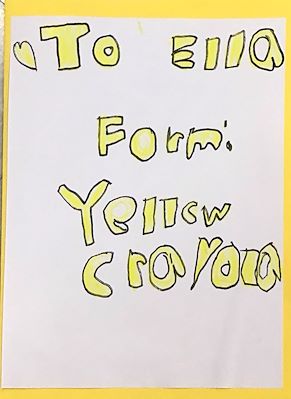 To Ella
Form:
Yellow
Crayola